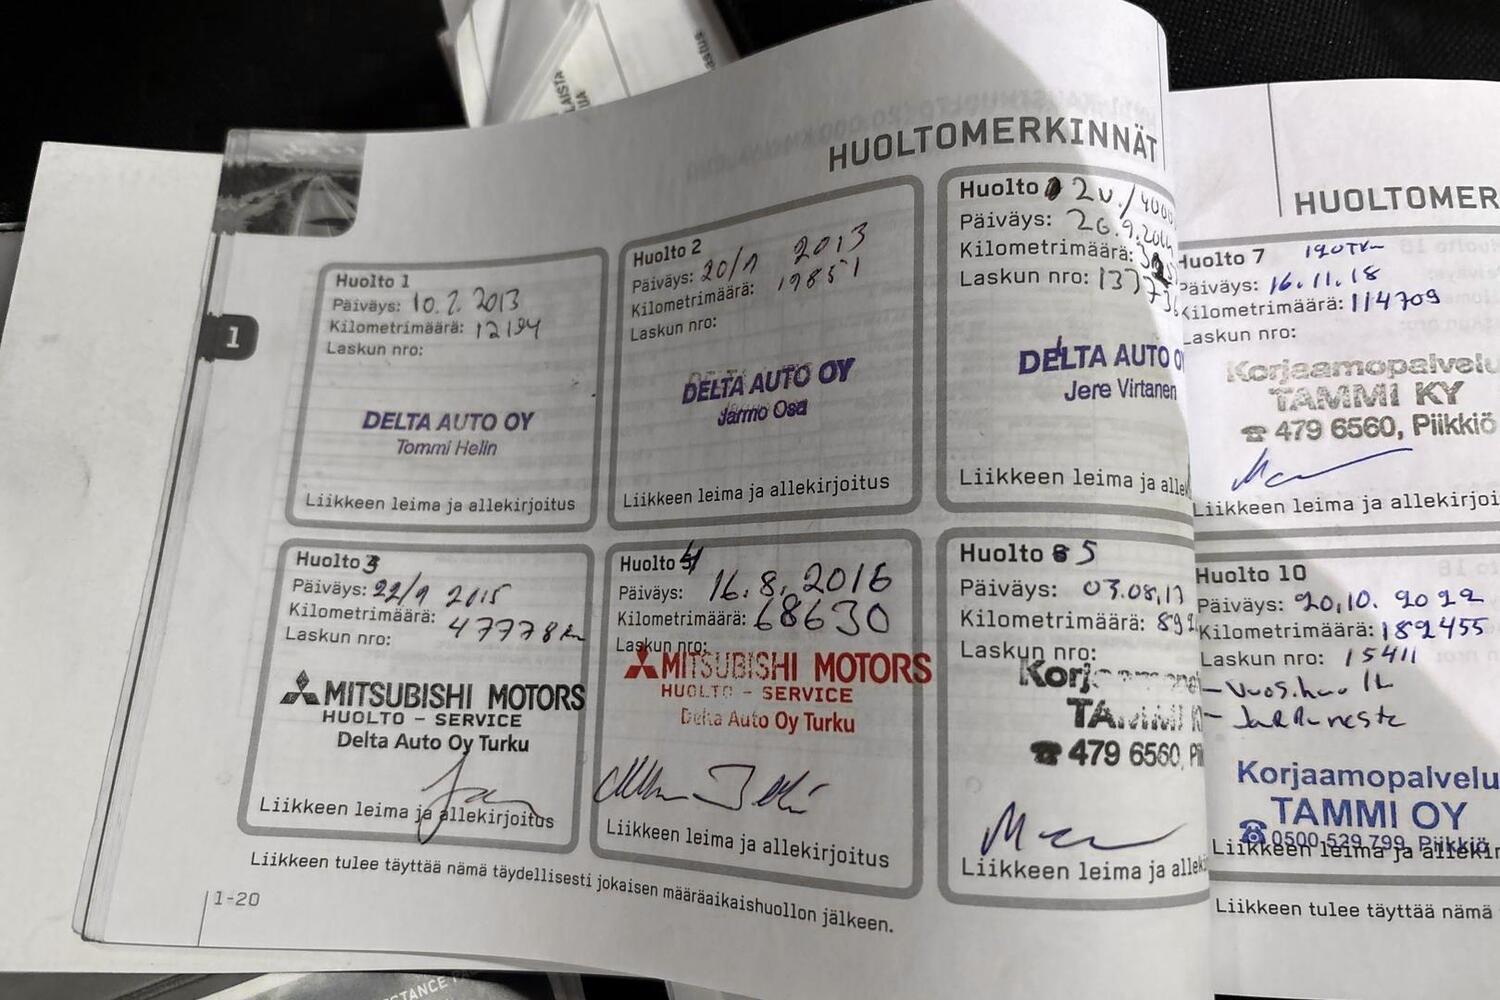 HUOLTOMERKINNÄT
1
Huolto 1
Päiväys: 10.2.2013
Kilometrimäärä: 12194
Laskun nro:
DELTA AUTO OY
Tommi Helin
Liikkeen leima ja allekirjoitus
Huolto 2
Päiväys: 20/9 2013
Kilometrimäärä: 19851
Laskun nro:
DELTA AUTO OY
Jarmo Osa
Liikkeen leima ja allekirjoitus
Huolto 2v./
Päiväys: 26.9.
Kilometrimäärä:
Laskun nro:
DELTA AUTO
Jere Virtanen
Liikkeen leima ja
Huolto 3
Päiväys: 22/9 2015
Kilometrimäärä: 47778km
Laskun nro:
MITSUBISHI MOTORS
HUOLTO - SERVICE
Delta Auto Oy Turku
Liikkeen leima ja allekirjoitus
Huolto 4
Päiväys: 16.8.2016
Kilometrimäärä: 68630
Laskun nro:
MITSUBISHI MOTORS
HUOLTO - SERVICE
Delta Auto Oy Turku
Liikkeen leima ja allekirjoitus
Huolto 5
Päiväys: 03.08.17
Kilometrimäärä:
Laskun nro:
TAMMI
479 6560,
Liikkeen leima ja
Liikkeen tulee täyttää nämä täydellisesti jokaisen määräaikaishuollon jälkeen.
1-20
HUOLTOMER
Huolto 7 120Tkm
Päiväys: 16.11.18
Kilometrimäärä: 114709
Laskun nro:
Korjaamopalvelu
TAMMI KY
479 6560, Piikkiö
Liikkeen leima ja
Huolto 10
Päiväys: 20.10.2022
Kilometrimäärä: 182455
Laskun nro: 15411
- Vuosihuolto
- Jarruneste
Korjaamopalvelu
TAMMI OY
0500 529 799, Piikkiö
Liikkeen leima ja
Liikkeen tulee täyttää nämä